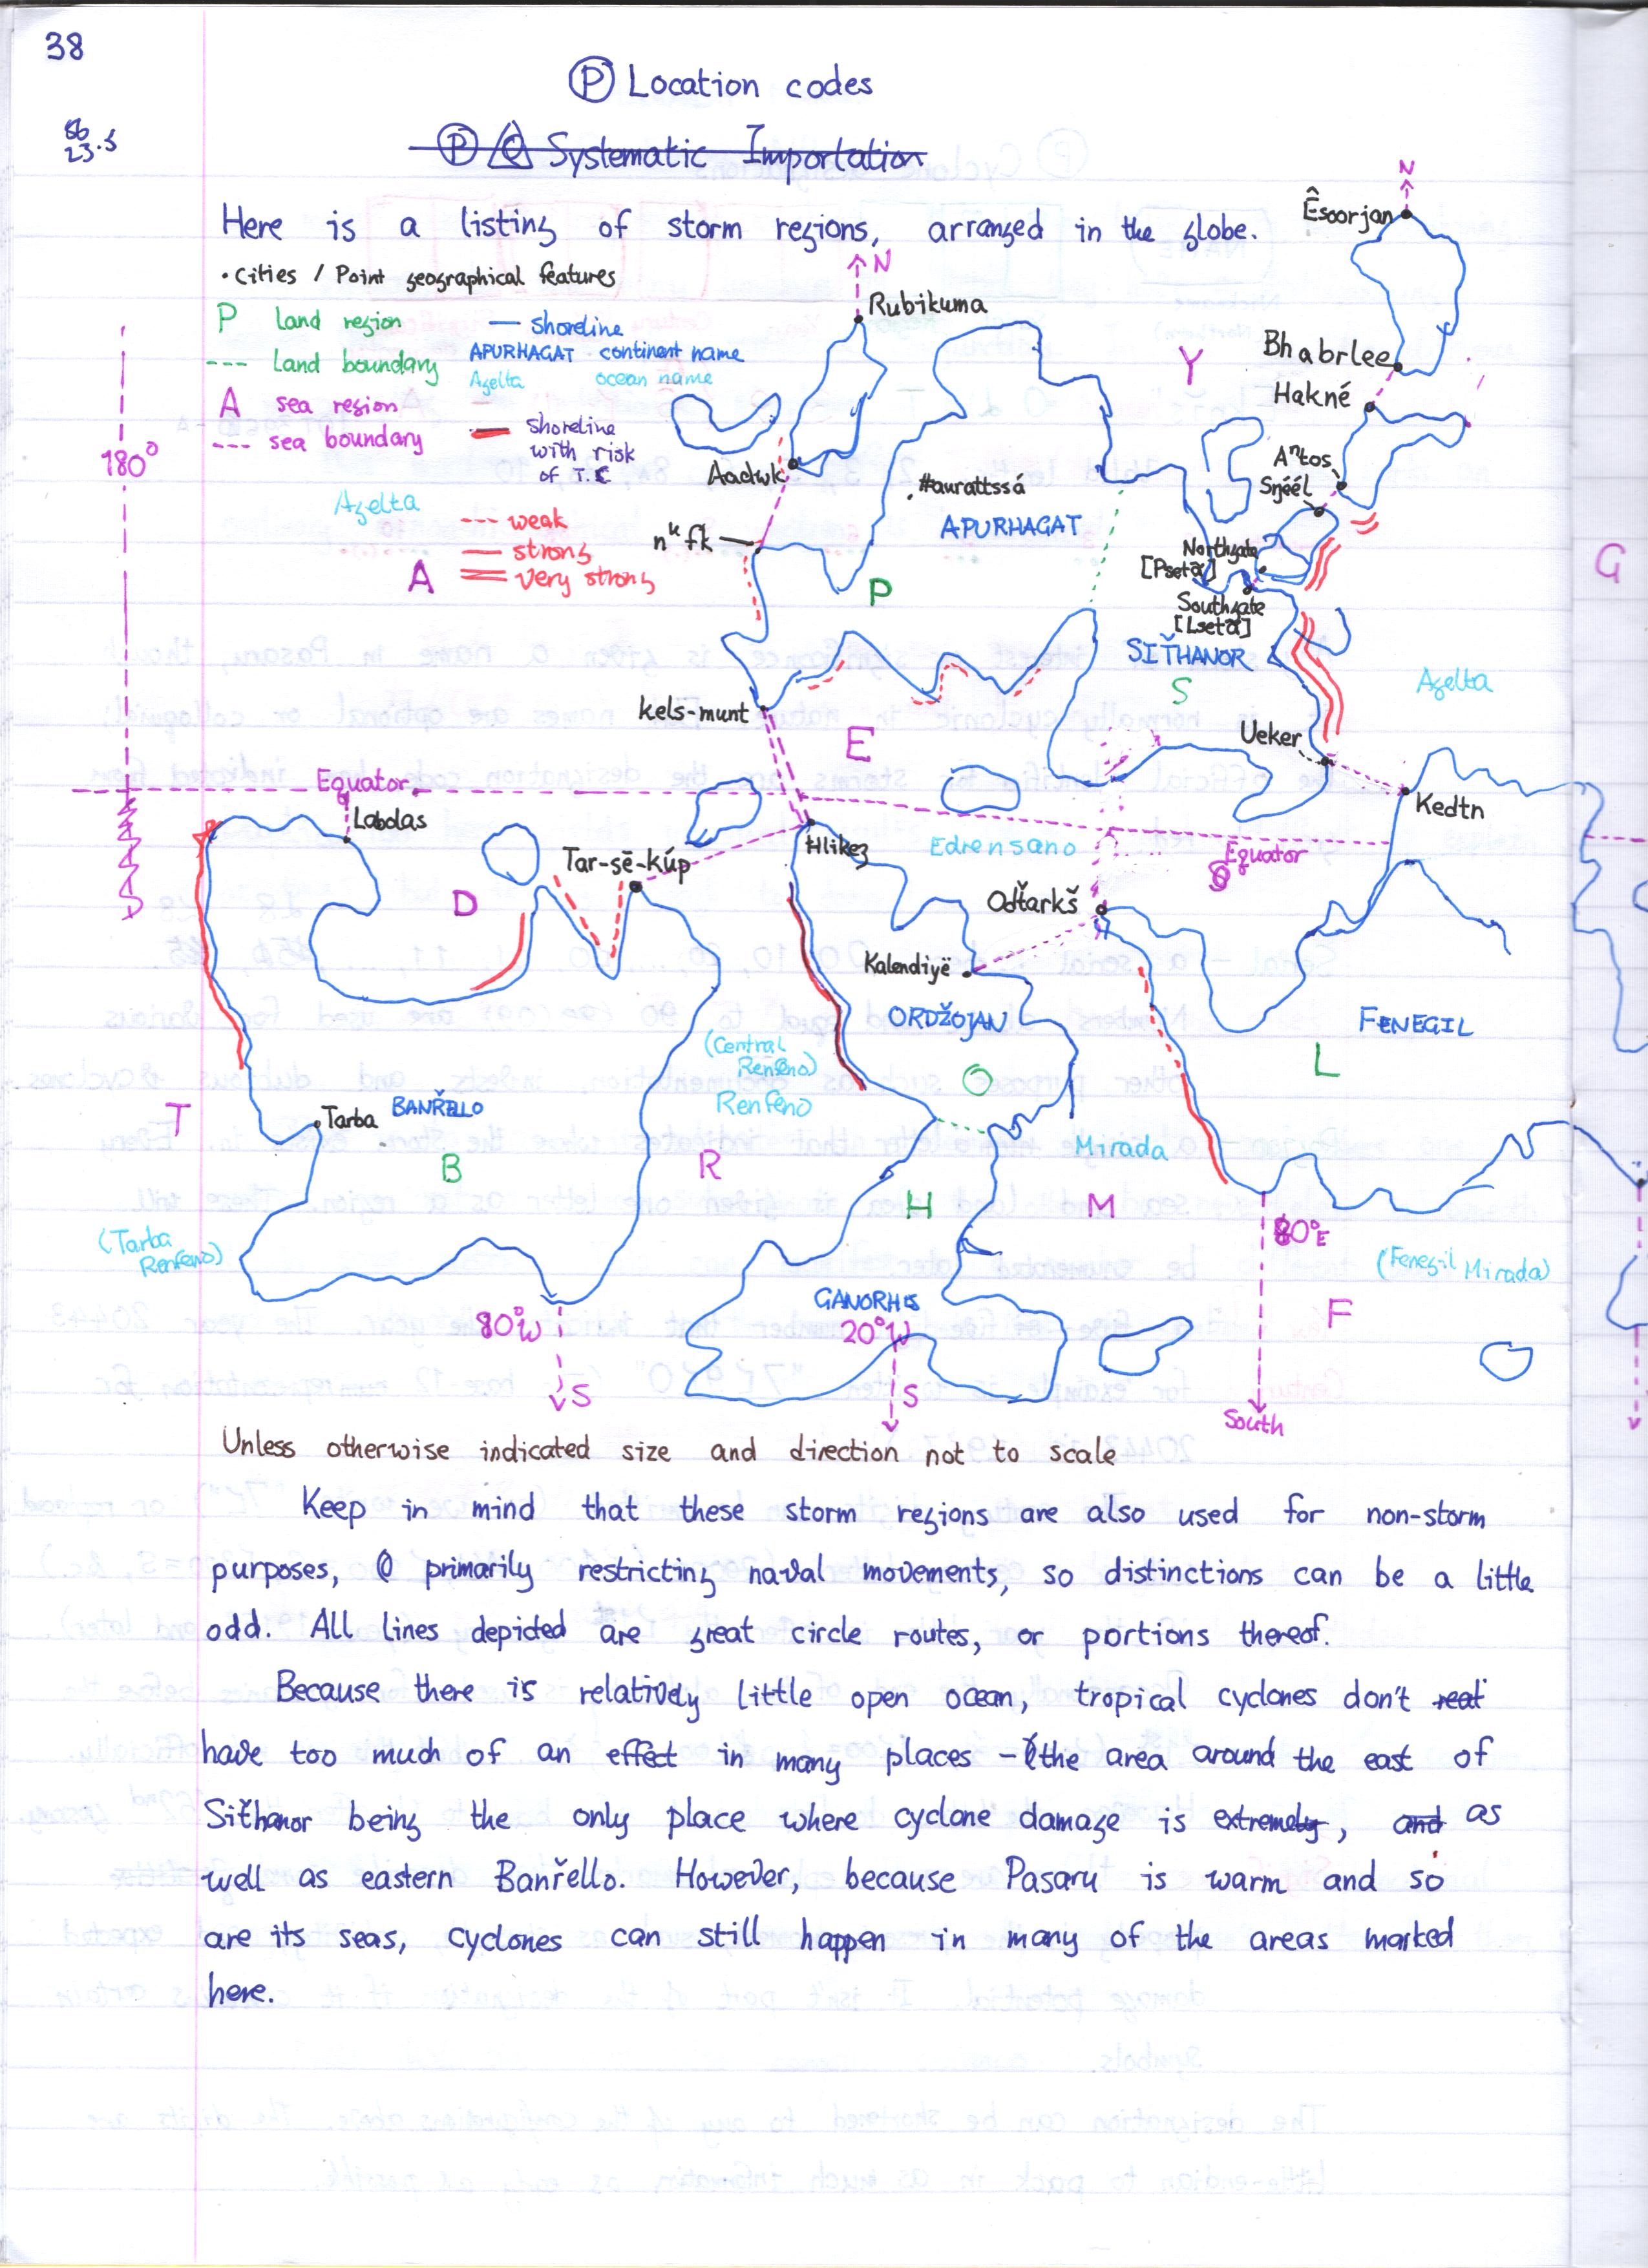 38
Ⓟ Location codes
23.5
Ⓟ Systematic Importation
Here is a listing of storm regions, arranged in the globe.
• Cities / Point geographical features
P land region
--- Land boundary
A sea region
--- sea boundary
— shoreline
APURHAGAT continent name
Azelta ocean name
shoreline
with risk
of T.C
--- weak
— strong
= very strong
180°
N
Rubikuma
N
Êsoorjan
Bhabrlee
Hakné
Y
Aadwk
#aurattssá
Aⁿtos
Sŋéél
Azelta
APURHAGAT
nᵏfk
A
P
Northgate
[Psetã]
Southgate
[Lsetã]
G
SIŤHANOR
S
Azelta
kels-munt
E
Ueker
Equator
Labdas
Kedtn
Hlikeʒ
Edrensano
Equator
Tar-sē-kúp
D
Odťarkš
Kalendiyë
ORDŽOJAN
FENEGIL
(Central
Renfeno)
O
L
Renfeno
T
Tarba
BANŘELLO
Mirada
B
R
H
M
80°E
(Tarba
Renfeno)
(Fenegil Mirada)
GANORHIS
F
80°W
20°W
S
S
South
Unless otherwise indicated size and direction not to scale
Keep in mind that these storm regions are also used for non-storm
purposes, primarily restricting naval movements, so distinctions can be a little
odd. All lines depicted are great circle routes, or portions thereof.
Because there is relatively little open ocean, tropical cyclones don't reat
have too much of an effect in many places - the area around the east of
Siťhanor being the only place where cyclone damage is extremely, and as
well as eastern Banřello. However, because Pasaru is warm and so
are its seas, cyclones can still happen in many of the areas marked
here.